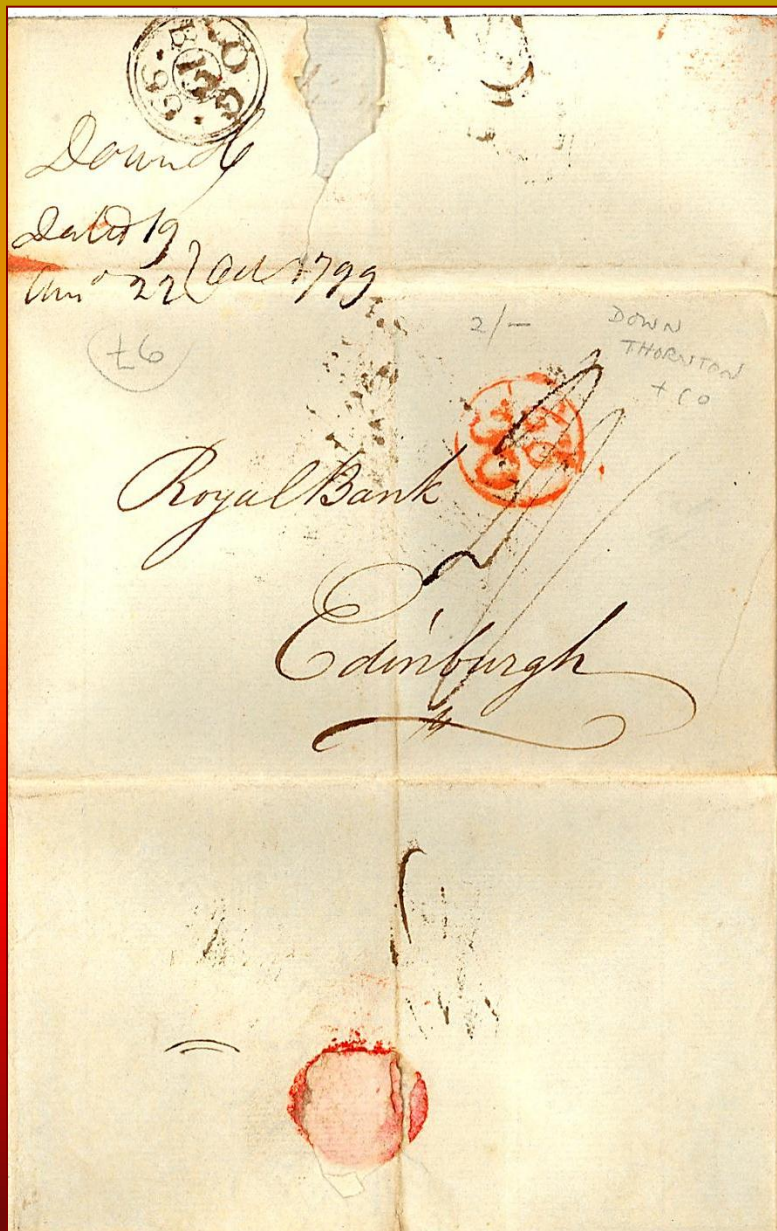 Down &
Dated 19
22 Oct 1799
£6
2/-
DOWN
THORNTON
+ CO
Royal Bank
Edinburgh